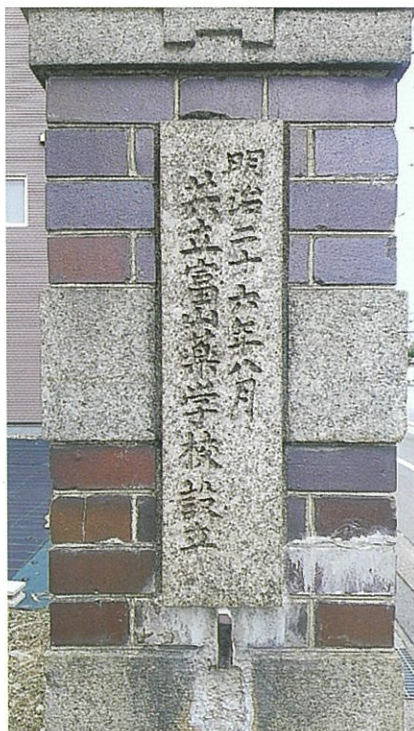 明治二十六年八月
共立富山薬学校設立